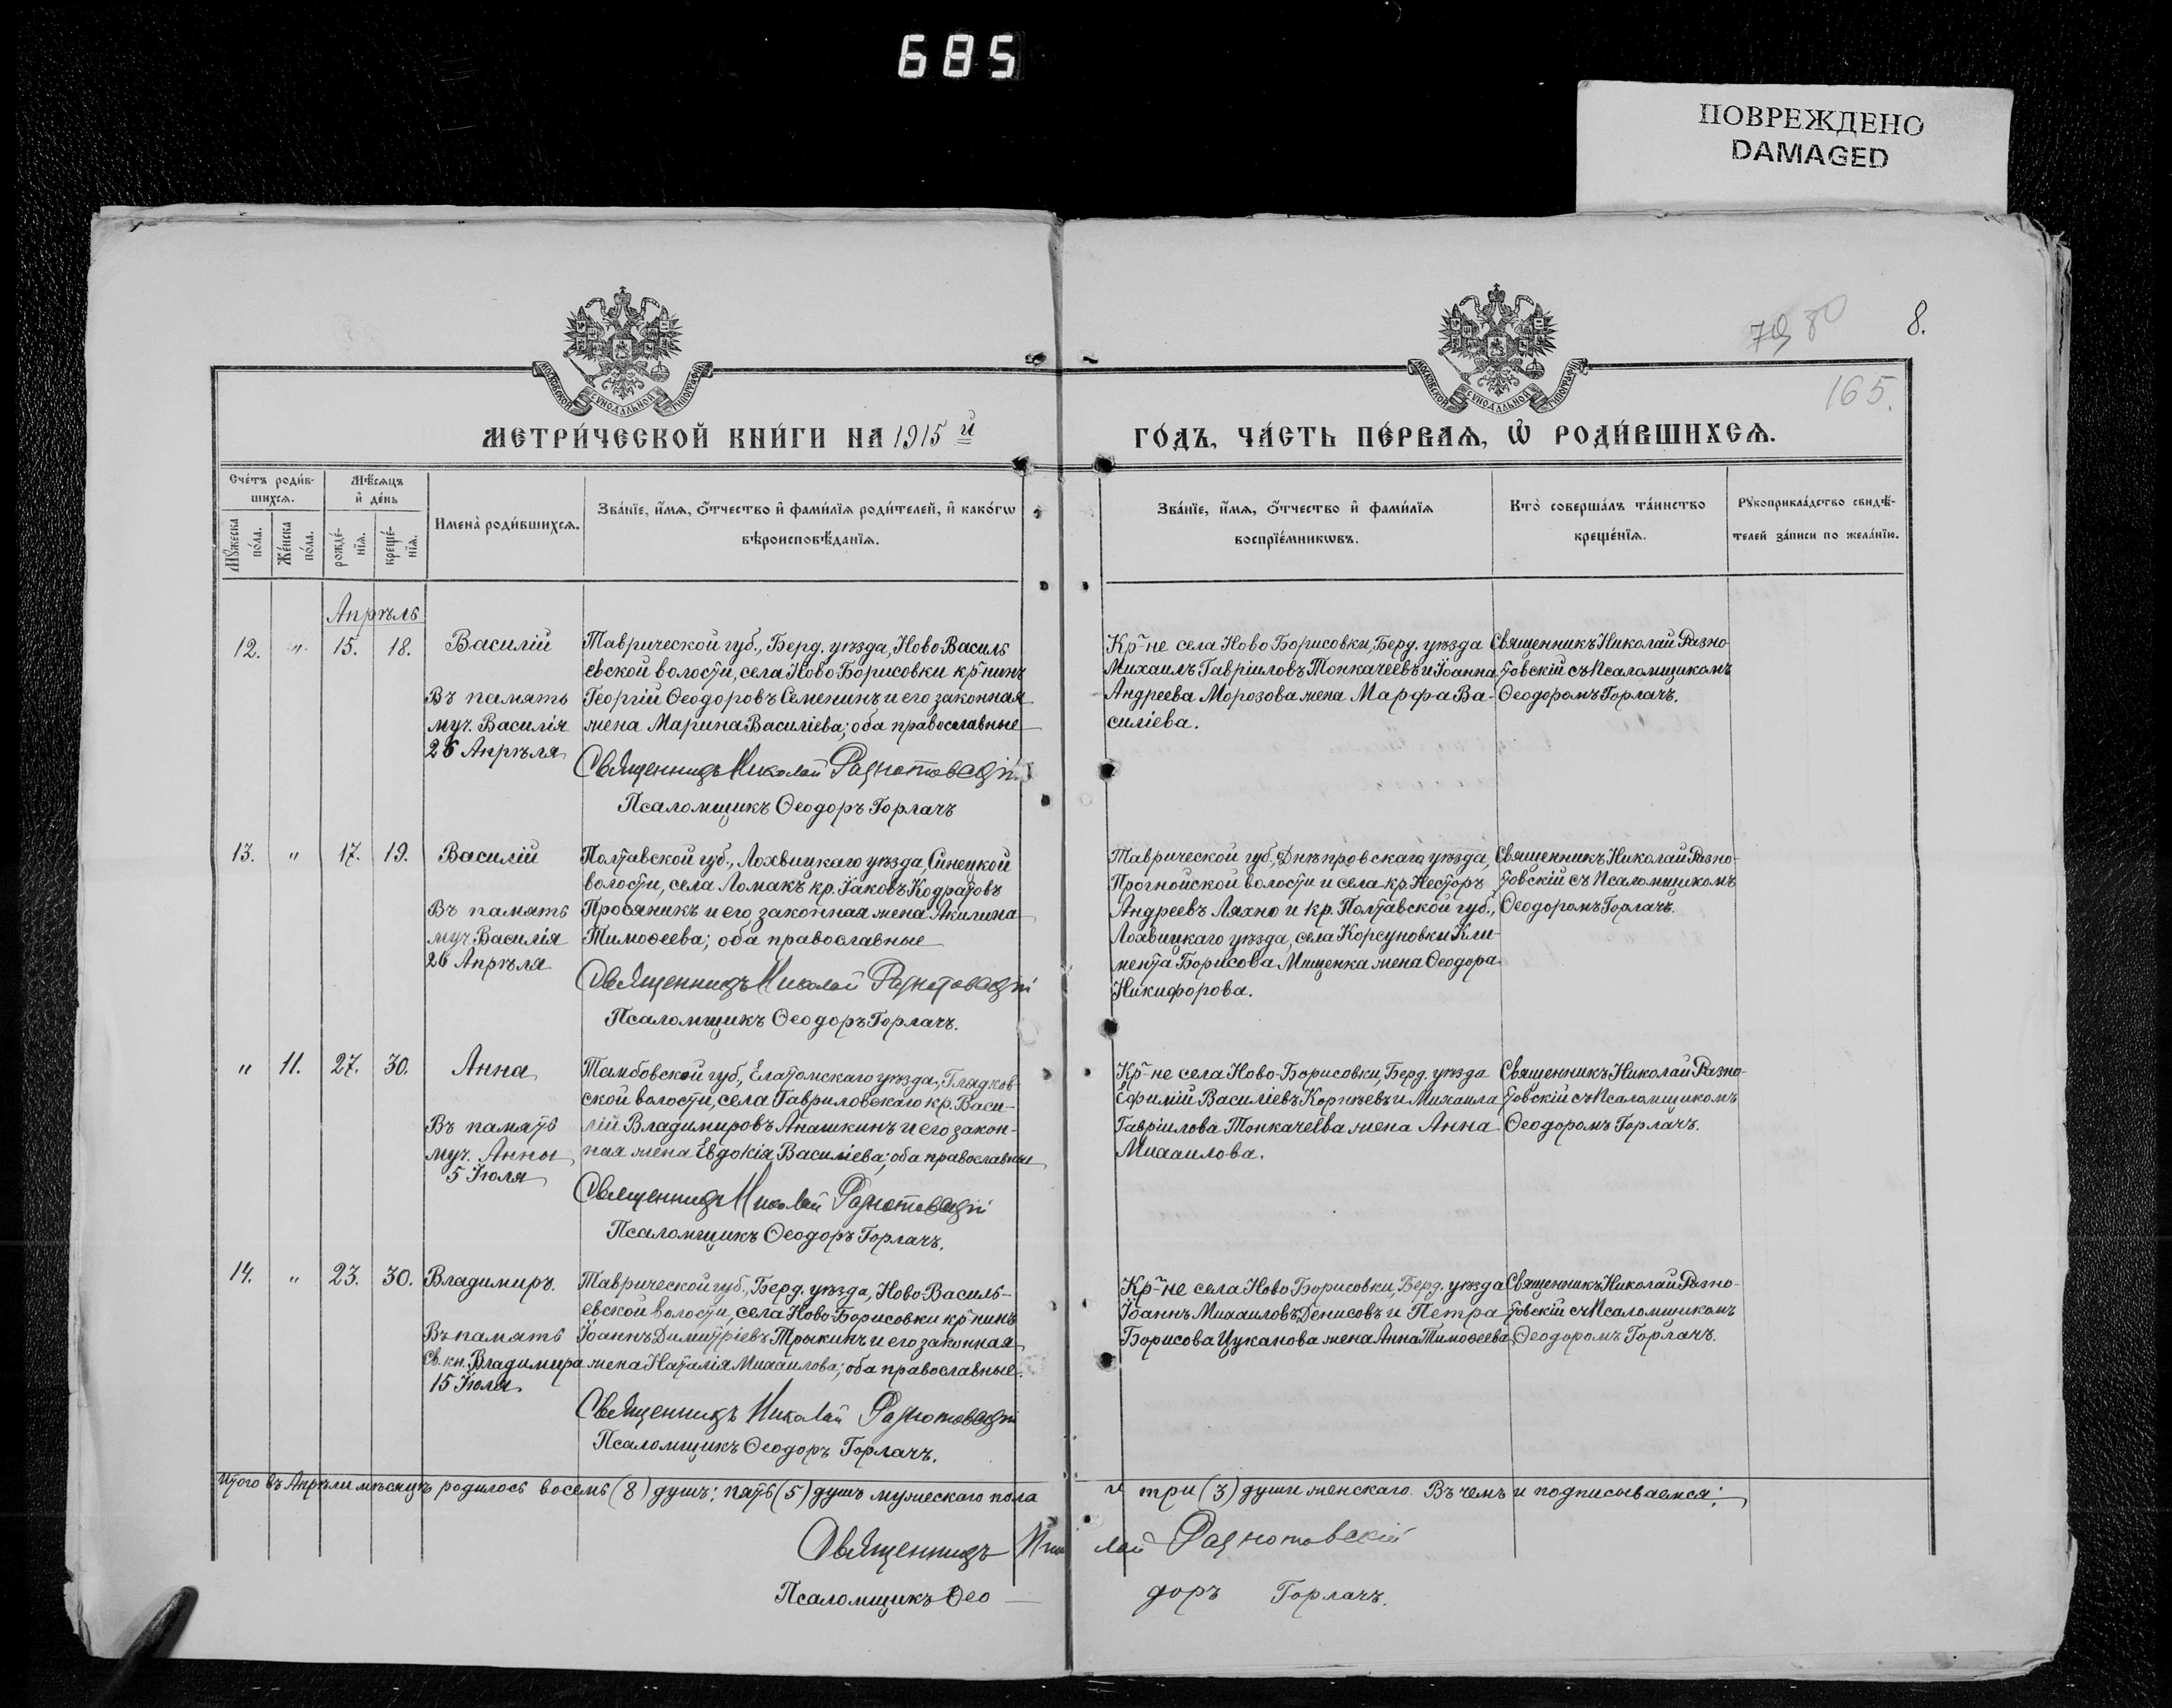 685
ПОВРЕЖДЕНО
DAMAGED
79 80
8.
165.
МОСКОВСКОЙ СѴНОДАЛЬНОЙ ТИПОГРАФІИ
МОСКОВСКОЙ СѴНОДАЛЬНОЙ ТИПОГРАФІИ
МЕТРИ́ЧЕСКОЙ КНИ́ГИ НА 1915 й
ГО́ДЪ, ЧА́СТЬ ПЕ́РВАЯ, Ѡ҆ РОДИ́ВШИХСЯ.
Сче́тъ роди́в-
шихся.
Мꙋжеска по́ла.
Же́нска по́ла.
Мѣсяцъ
и҆ де́нь
рожде́-
нїя.
креще́-
нїя.
Имена̀ роди́вшихся.
Зва́нїе, и҆́мя, ѻ҆́тчество и҆ фами́лїя роди́телей, и҆ како́гѡ
вѣроисповѣ́данїя.
Зва́нїе, и҆́мя, ѻ҆́тчество и҆ фами́лїя
воспрїе́мникѡвъ.
Кто̀ соверша́лъ та́инство
креще́нїя.
Рꙋкоприкла́дство свидѣ́-
телей за́писи по жела́нїю.
Апрѣль
12. " 15. 18. Василій
Въ память
муч. Василія
26 Апрѣля
Таврической губ., Берд. уѣзда, Ново-Василь
евской волости, села Ново Борисовки кр-нинъ
Георгій Ѳеодоровъ Семенинъ и его законная
жена Марина Василіева; оба православные
Священникъ Николай Разнотовскій
Псаломщикъ Ѳеодоръ Горлачъ
Кр-не села Ново Борисовки, Берд. уѣзда
Михаилъ Гавріиловъ Тонкачеевъ и Іоанна
Андреева Морозова жена Марфа Ва-
силіева.
Священникъ Николай Разно-
товскій съ Псаломщикомъ
Ѳеодоромъ Горлачъ.
13. " 17. 19. Василій
Въ память
муч. Василія
26 Апрѣля
Полтавской губ., Лохвицкаго уѣзда, Синецкой
волости, села Ломакъ кр. Іаковъ Кодратовъ
Просяникъ и его законная жена Акилина
Тимоѳеева; оба православные
Священникъ Николай Разнотовскій
Псаломщикъ Ѳеодоръ Горлачъ.
Таврической губ., Днѣпровскаго уѣзда,
Прогнойской волости и села кр. Несторъ
Андреевъ Ляхно и кр. Полтавской губ.,
Лохвицкаго уѣзда, села Корсуновки Кли-
мента Борисова Мищенка жена Ѳеодора
Никифорова.
Священникъ Николай Разно-
товскій съ Псаломщикомъ
Ѳеодоромъ Горлачъ.
" 11. 27. 30. Анна
Въ память
муч. Анны
5 Іюля
Тамбовской губ., Елатомскаго уѣзда, Глядков-
ской волости, села Гавриловскаго кр. Васи-
лій Владимировъ Анашкинъ и его закон-
ная жена Евдокія Василіева; оба православные
Священникъ Николай Разнотовскій
Псаломщикъ Ѳеодоръ Горлачъ.
Кр-не села Ново-Борисовки, Берд. уѣзда
Ефимій Василіевъ Корнѣевъ и Михаила
Гавріилова Тонкачеева жена Анна
Михаилова.
Священникъ Николай Разно-
товскій съ Псаломщикомъ
Ѳеодоромъ Горлачъ.
14. " 23. 30. Владимиръ.
Въ память
Св. кн. Владимира
15 Іюля.
Таврической губ., Берд. уѣзда, Ново-Василь-
евской волости, села Ново-Борисовки кр-нинъ
Іоаннъ Димитріевъ Трыкинъ и его законная
жена Наталія Михаилова; оба православные.
Священникъ Николай Разнотовскій
Псаломщикъ Ѳеодоръ Горлачъ.
Кр-не села Ново Борисовки, Берд. уѣзда
Іоаннъ Михаиловъ Денисовъ и Петра
Борисова Цуканова жена Анна Тимоѳеева
Священникъ Николай Разно-
товскій съ Псаломщикомъ
Ѳеодоромъ Горлачъ.
Итого въ Апрѣли мѣсяцѣ родилось восемь (8) душъ; пять (5) душъ мужескаго пола и три (3) души женскаго. Въ чемъ и подписываемся:
Священникъ Николай Разнотовскій
Псаломщикъ Ѳео-доръ Горлачъ.